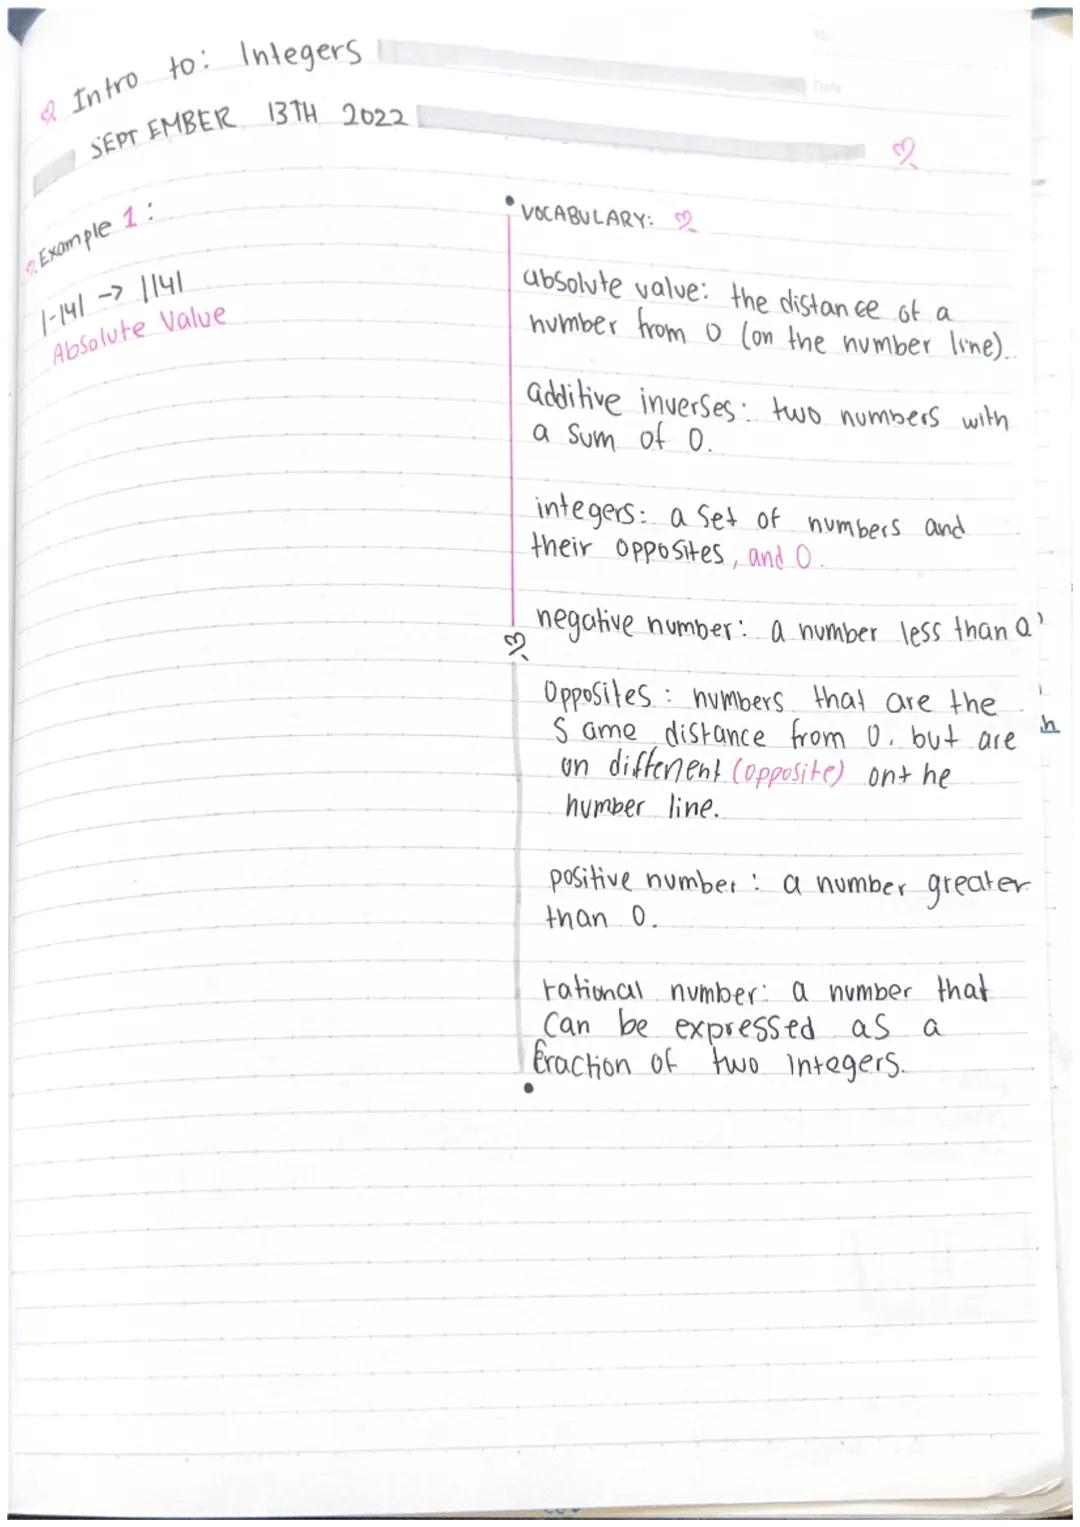 Intro to: Integers
SEPTEMBER 13TH 2022
Date
Example 1:
|-14| -> |14|
Absolute Value
VOCABULARY:
absolute value: the distance of a
number from 0 (on the number line).
additive inverses: two numbers with
a sum of 0.
integers: a set of numbers and
their opposites, and 0.
negative number: a number less than 0
Opposites: numbers that are the
same distance from 0, but are
on different (opposite) on the
number line.
positive number: a number greater
than 0.
rational number: a number that
can be expressed as a
fraction of two integers.